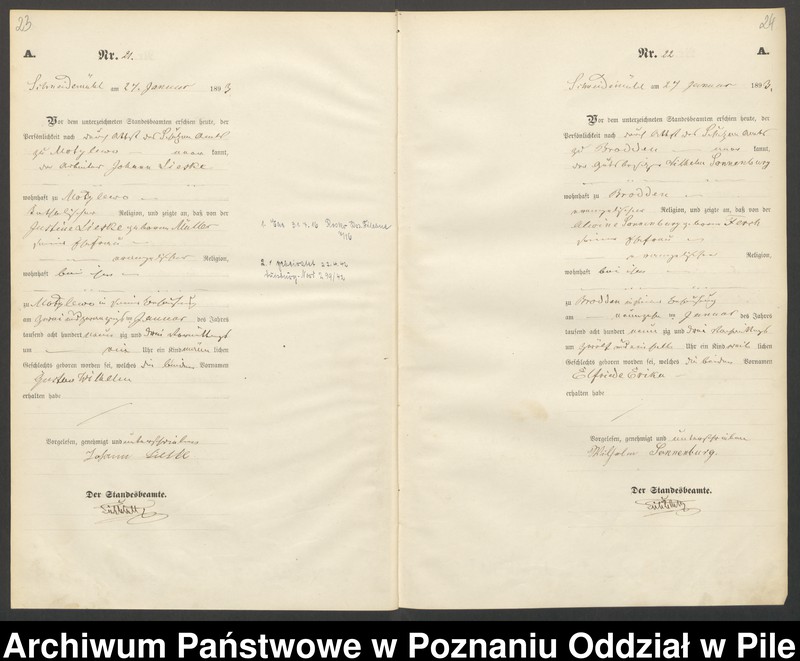 23
A.
Nr. 21.
Schneidemühl am 27. Januar 1893
Vor dem unterzeichneten Standesbeamten erschien heute, der
Persönlichkeit nach durch Attest des Schulzen Amts
zu Motylewo kannt,
der Arbeiter Johann Lieske
wohnhaft zu Motylewo
katholischer Religion, und zeigte an, daß von der
Justine Lieske geborene Müller
seiner Ehefrau
evangelischer Religion,
wohnhaft bei ihm
zu Motylewo in seiner Behausung
am zwei und zwanzigsten Januar des Jahres
tausend acht hundert neun zig und drei Vormittags
um ein Uhr ein Kind männ lichen
Geschlechts geboren worden sei, welches die beiden Vornamen
Gustav Wilhelm
erhalten habe
Vorgelesen, genehmigt und unterschrieben
Johann
Der Standesbeamte.
1.
2. geheiratet
24
A.
Nr. 22
Schneidemühl am 27 Januar 1893.
Vor dem unterzeichneten Standesbeamten erschien heute, der
Persönlichkeit nach durch Attest des Schulzen Amts
zu Brodden kannt,
der Gutsbesitzer Wilhelm Sonnenburg
wohnhaft zu Brodden
evangelischer Religion, und zeigte an, daß von der
Alwine Sonnenburg geborene
seiner Ehefrau
evangelischer Religion,
wohnhaft bei ihm
zu Brodden in seiner Behausung
am neunzehnten Januar des Jahres
tausend acht hundert neun zig und drei Nachmittags
um zwölf und ein halb Uhr ein Kind weib lichen
Geschlechts geboren worden sei, welches die beiden Vornamen
Elfriede Erika
erhalten habe
Vorgelesen, genehmigt und unterschrieben
Wilhelm Sonnenburg.
Der Standesbeamte.
Archiwum Państwowe w Poznaniu Oddział w Pile